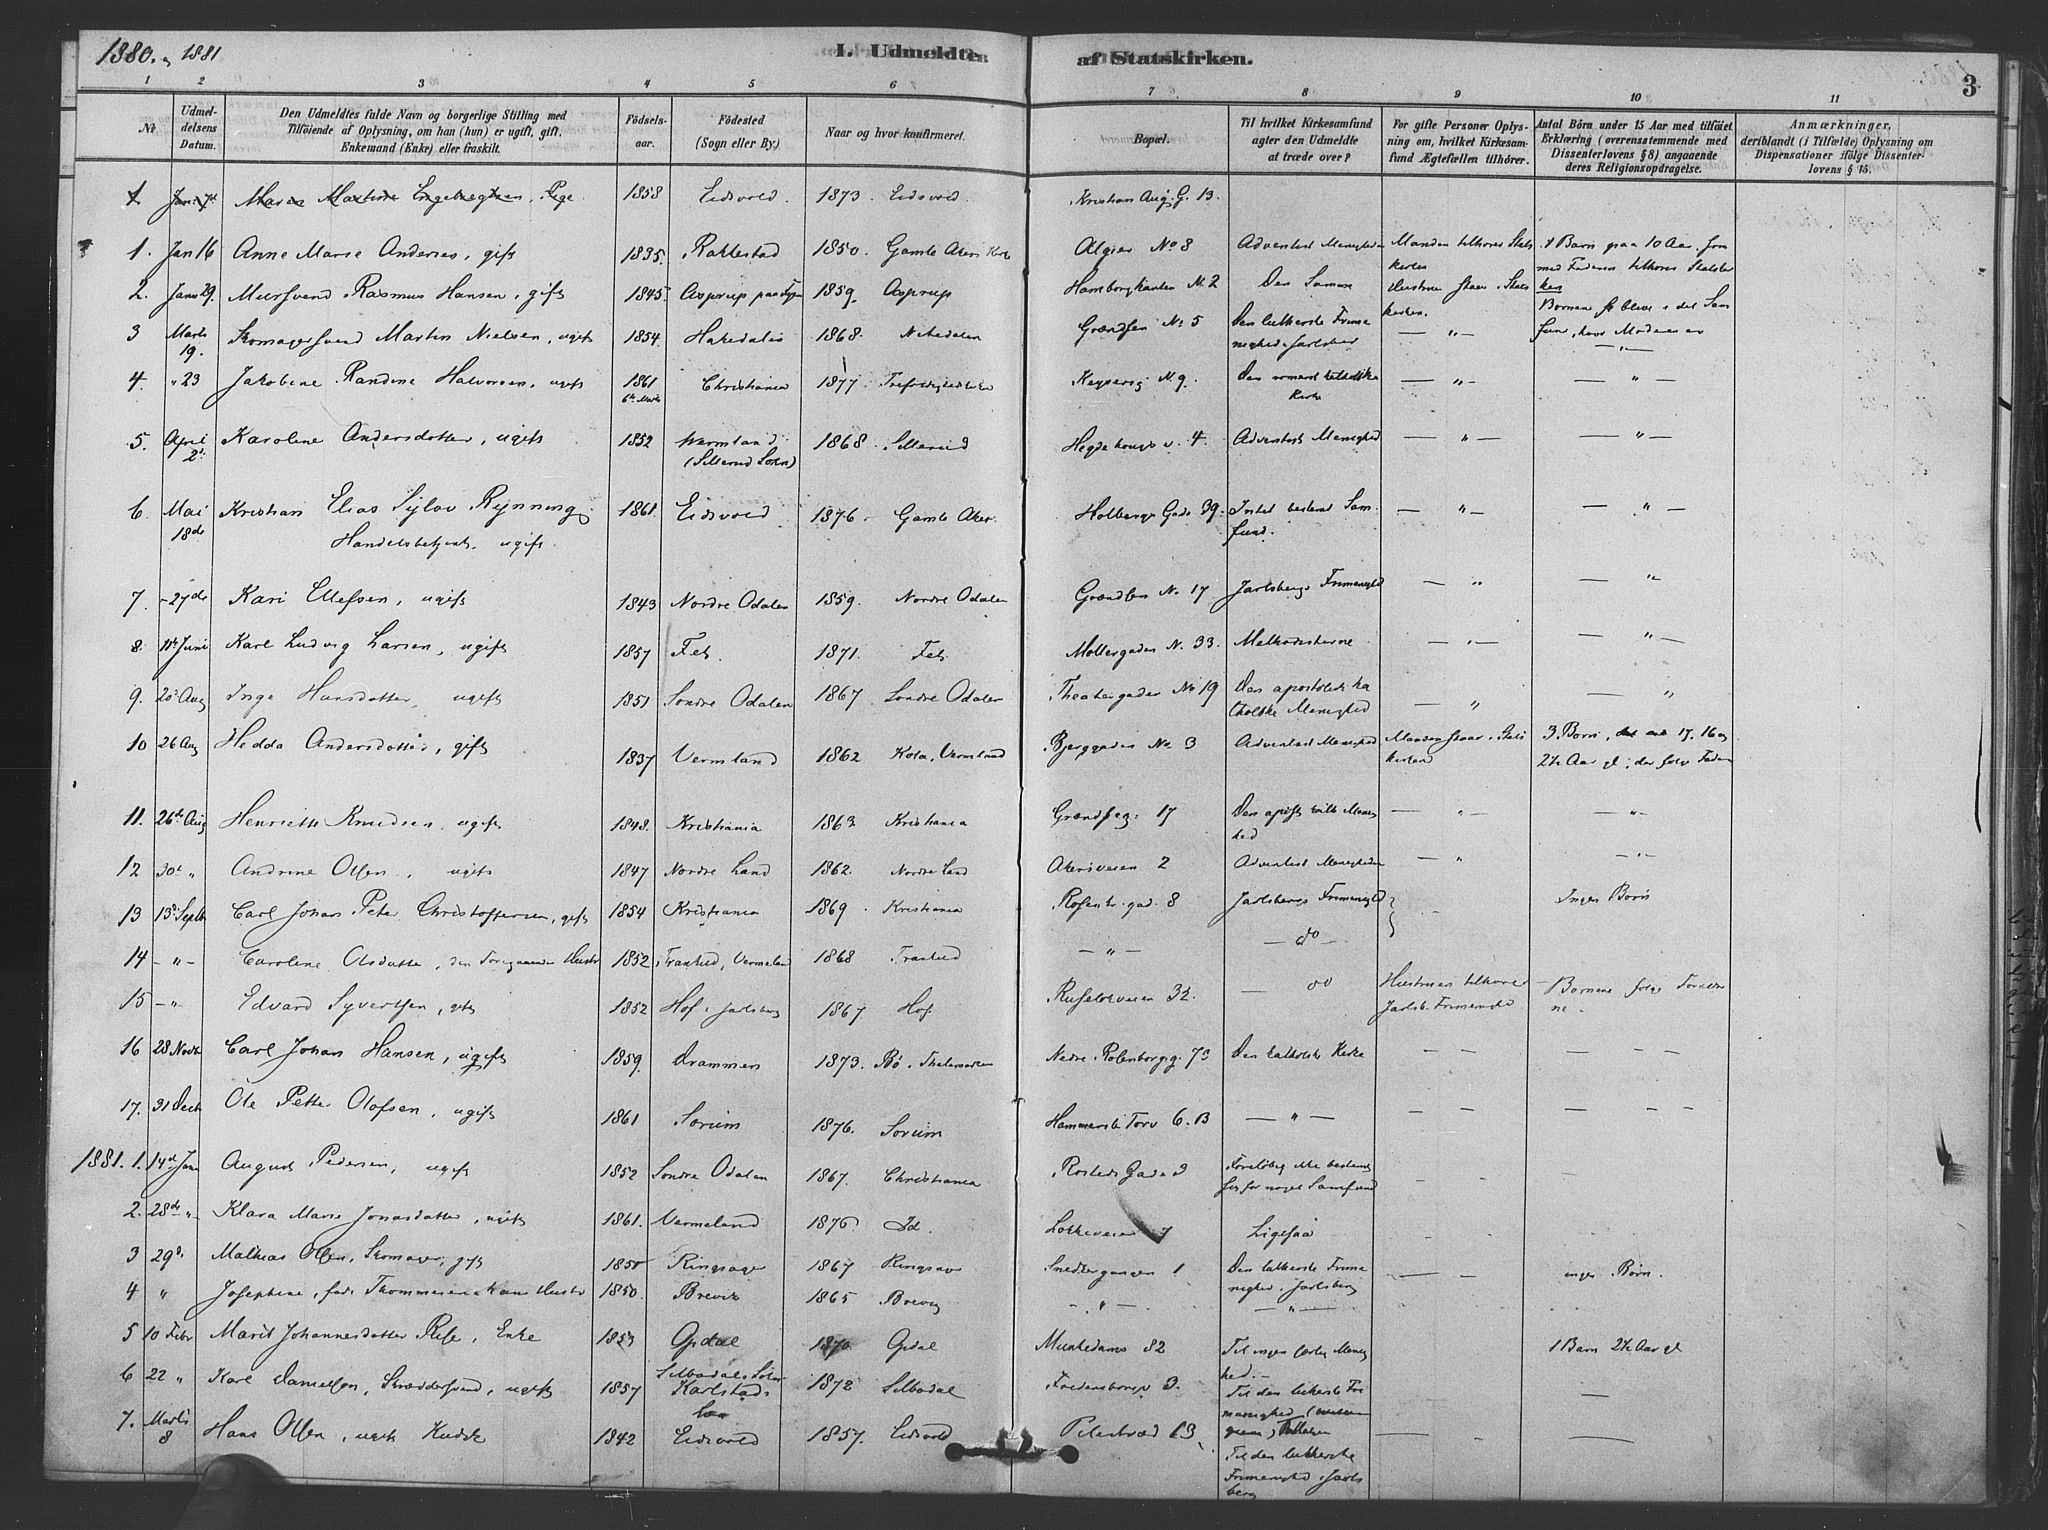 1880 og 1881
I. Udmeldte af Statskirken.
3
1 2 3 4 5 6 7 8 9 10 11
№ | Udmeldelsens Datum. | Den Udmeldtes fulde Navn og borgerlige Stilling med Tilföiende af Oplysning, om han (hun) er ugift, gift, Enkemand (Enke) eller fraskilt. | Födselsaar. | Födested (Sogn eller By.) | Naar og hvor konfirmeret. | Bopæl. | Til hvilket Kirkesamfund agter den Udmeldte at træde over? | For gifte Personer Oplysning om, hvilket Kirkesamfund Ægtefællen tilhörer. | Antal Börn under 15 Aar med tilföiet Erklæring (overensstemmende med Dissenterlovens § 8) angaaende deres Religionsopdragelse. | Anmærkninger, deriblandt (i Tilfælde) Oplysning om Dispensationer ifölge Dissenterlovens § 15.
1. Jan 7de Maren Martine Engebregtsen, Pige 1858 Eidsvold. 1873 Eidsvold. Kristian Aug. G. 13.
1. Jan 16 Anne Marie Anderses, gift 1835. Rakkestad 1850. Gamle Akers Kirke Algier No 8 Adventist Menigheden Manden tilhører Statskirken 1 Barn paa 10 Aar, som med Faderen tilhører Statskirken
2. Janu 29. Mursvend Rasmus Hansen, gift 1845. Asprup paa Fyen 1859. Asprup Hamborgkanten N. 2 Den Samme Hustruen staar i Statskirken. Børnene blive i det Samfund, hvor Moderen er
3 Marts 19. Skomagersvend Martin Nielsen, ugift 1854. Hakedalen 1868. Nitedalen Grændsen No 5 Den lutherske Frimenighed i Jarlsberg — " — — " —
4. " 23 Jakobine Randine Halvorsen, ugift 1861 6te Marts Christiania 1877. Trefoldighedskirken Keysersg N. 9. Den romersk katholske Kirke — " — — " —
5. April 2d. Karoline Andersdotter, ugift 1852 Wermland (Sillerud Sokn) 1868. Sillerud Hegdehaugsv. 4. Adventist Menighed — " — — " —
6. Mai 18de Kristian Elias Sylov Rynning, 1861. Eidsvold 1876 - Gamle Aker. Holbergs Gade 39. Intet bestemt Samfund. — " — — " —
Handelsbetjent. ugift.
7. - 27de Kari Ellefsen, ugift 1843 Nordre Odalen 1859. Nordre Odalen Grændsen No 17 Jarlsbergs Frimenighed — " — "
8. 11te Juni Karl Ludvig Larsen, ugift 1857 Fet. 1871. Fet. Møllergaden N. 33. Methodisterne — " — — " —
9. 20d Aug Inge Hansdatter, ugift 1851 Søndre Odalen 1867 Søndre Odalen Theatergaden No 19 Den apostolisk katholske Menighed — " — "
10 26 Aug Hedda Andersdotter, gift 1837 Vermland 1862 Kola, Vermland Bjerggaden No. 3 Adventist Menighed Manden staar i Statskirken 3 Børn, 17, 16 og 2½ Aar gl, der følge Faderen
11. 26de Aug Henriette Knudsen, ugift 1848. Kristiania 1863 Kristiania Grændseg. 17 Den apost. kath. Menighed — " — — " —
12 30d " Andrine Olsen, ugift 1847 Nordre Land 1862. Nordre Land Akersveien 2 Adventist Menigheden — " — " —
13 13d Septbr Carl Johan Peter Christoffersen, gift 1854 Kristiania 1869 Kristiania Rosenkr. gad. 8 Jarlsbergs Frimenighd Ingen Børn
14 - " - Caroline Olsdatter, den Foregaaendes Hustru 1852 Trankil, Vermeland 1868 Trankil — " — — do —
15 - " Edvard Syvertsen, gift 1852 Hof i Jarlsberg 1867. Hof. Ruseløkveien 32. — do Hustruen tilhører Jarlsb. Frimenighd Børnene følge Forældrene.
16 28 Novbr Carl Johan Hansen, ugift 1859. Drammen 1873. Bø i Thelemarken Nedre Volenborgsg. 73 Den katholske Kirke
17. 31 Decbr Ole Petter Olofsen, ugift 1861 Sørum 1876. Sørum Hammersb. Torv 6. B — " —
1881. 1. 14de Janu August Pedersen, ugift 1852 Søndre Odalen 1867. Christiania Rosteds Gade 3 Foreløbig ikke bestemt sig for noget Samfund
2. 28de " Klara Marie Jonasdotter, ugift 1861. Vermeland 1876 Id. Løkkeveien 7 Ligesaa
3 29d Mathias Olsen, Skomager, gift 1850 Ringsager 1867 Ringsager Snedkergangen 1 Den lutherske Frimenighed i Jarlsberg ingen Børn.
4 " Josephine, født Thommesen, hans Hustru 1850. Brevik 1865 Brevig — " — — " —
5 10 Febr Marit Johannesdatter Rise, Enke 1853 Opdal 1870 Opdal Munkedams 82 Til ingen særlig Menighed. 1 Barn 2½ Aar gl
6 22 " Karl Danielsen, Skræddersvend, ugift 1857 Silbodals Sokn Karlstads Län 1872 Silbodal Fredensborgv 3. Til den lutherske Frimenighed
7. Marts 8 Hans Olsen, ugift Kudsk 1842 Eidsvold 1857. Eidsvold Pilestræd 13 Til den lutherske Frimenighed i Jarlsberg